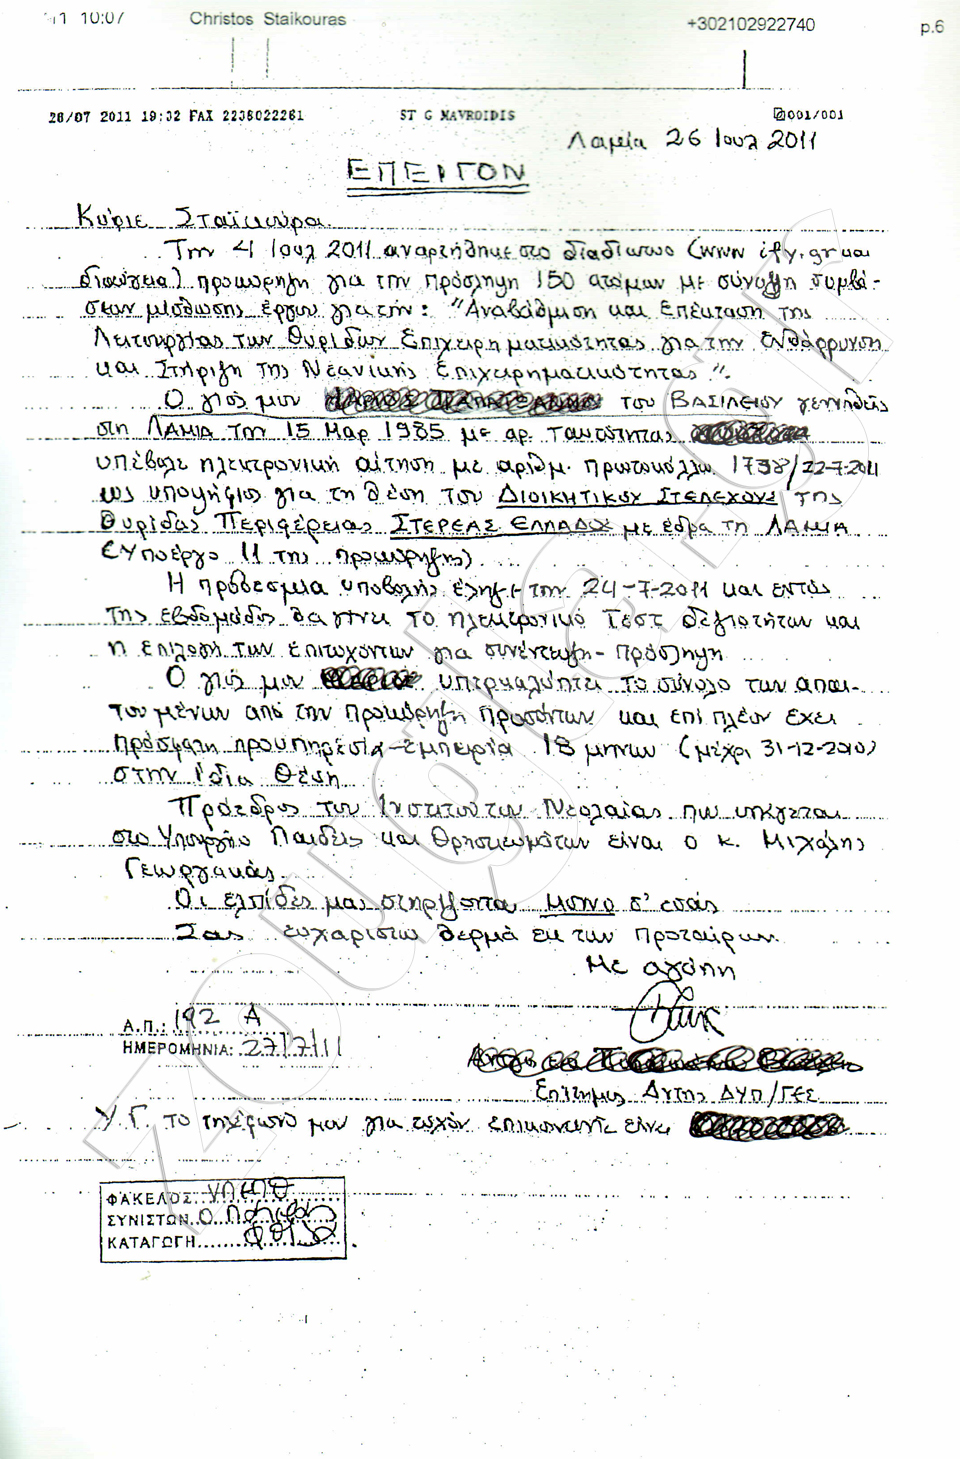 11 10:07 Christos Staikouras +302102922740 p.6
26/07 2011 19:32 FAX 2236022261 ST G MAVROIDIS 001/001
Λαμία 26 Ιουλ 2011
ΕΠΕΙΓΟΝ
Κύριε Σταϊκούρα
Την 4 Ιουλ 2011 αναρτήθηκε στο διαδίκτυο (www ify.gr και
διαύγεια) προκύρηξη για την πρόσληψη 150 ατόμων με σύναψη συμβά-
σεων μίσθωσης έργου για την: "Αναβάθμιση και Επέκταση της
Λειτουργίας των Θυρίδων Επιχειρηματικότητας για την Ενθάρρυνση
και Στήριξη της Νεανικής Επιχειρηματικότητας".
Ο γιός μου του ΒΑΣΙΛΕΙΟΥ γεννηθείς
στη ΛΑΜΙΑ την 15 Μαρ 1985 με αρ. ταυτότητας
υπέβαλε ηλεκτρονική αίτηση με αριθμ. πρωτοκόλλου 1738/22-7-2011
ως υποψήφιος για τη θέση του ΔΙΟΙΚΗΤΙΚΟΥ ΣΤΕΛΕΧΟΥΣ της
Θυρίδας Περιφέρειας ΣΤΕΡΕΑΣ ΕΛΛΑΔΟΣ με έδρα τη ΛΑΜΙΑ
(Υποέργο 11 της προκύρηξης)
Η προθεσμία υποβολής έληξε την 24-7-2011 και εντός
της εβδομάδος θα γίνει το ηλεκτρονικό τέστ δεξιοτήτων και
η επιλογή των επιτυχόντων για συνέντευξη - πρόσληψη
Ο γιός μου υπερκαλύπτει το σύνολο των απαι-
τουμένων από την προκύρηξη προσόντων και επί πλέον έχει
πρόσφατη προυπηρεσία-εμπειρία 18 μηνών (μέχρι 31-12-2010)
στην ίδια θέση
Πρόεδρος του Ινστιτούτου Νεολαίας που υπάγεται
στο Υπουργείο Παιδείας και Θρησκευμάτων είναι ο κ. Μιχάλης
Γεωργακάς.
Οι ελπίδες μας στηρίζονται μόνο σ' εσάς
Σας ευχαριστώ θερμά εκ των προτέρων.
Με αγάπη
Α.Π.: 192 Α
ΗΜΕΡΟΜΗΝΙΑ: 27/7/11
Επίτιμος Δντης ΔΥΠ/ΓΕΣ
Υ.Γ. Το τηλέφωνό μου για τυχόν επικοινωνία είναι
ΦΑΚΕΛΟΣ: ΥΠΕΠΘ
ΣΥΝΙΣΤΩΝ Ο
ΚΑΤΑΓΩΓΗ
zougla.gr